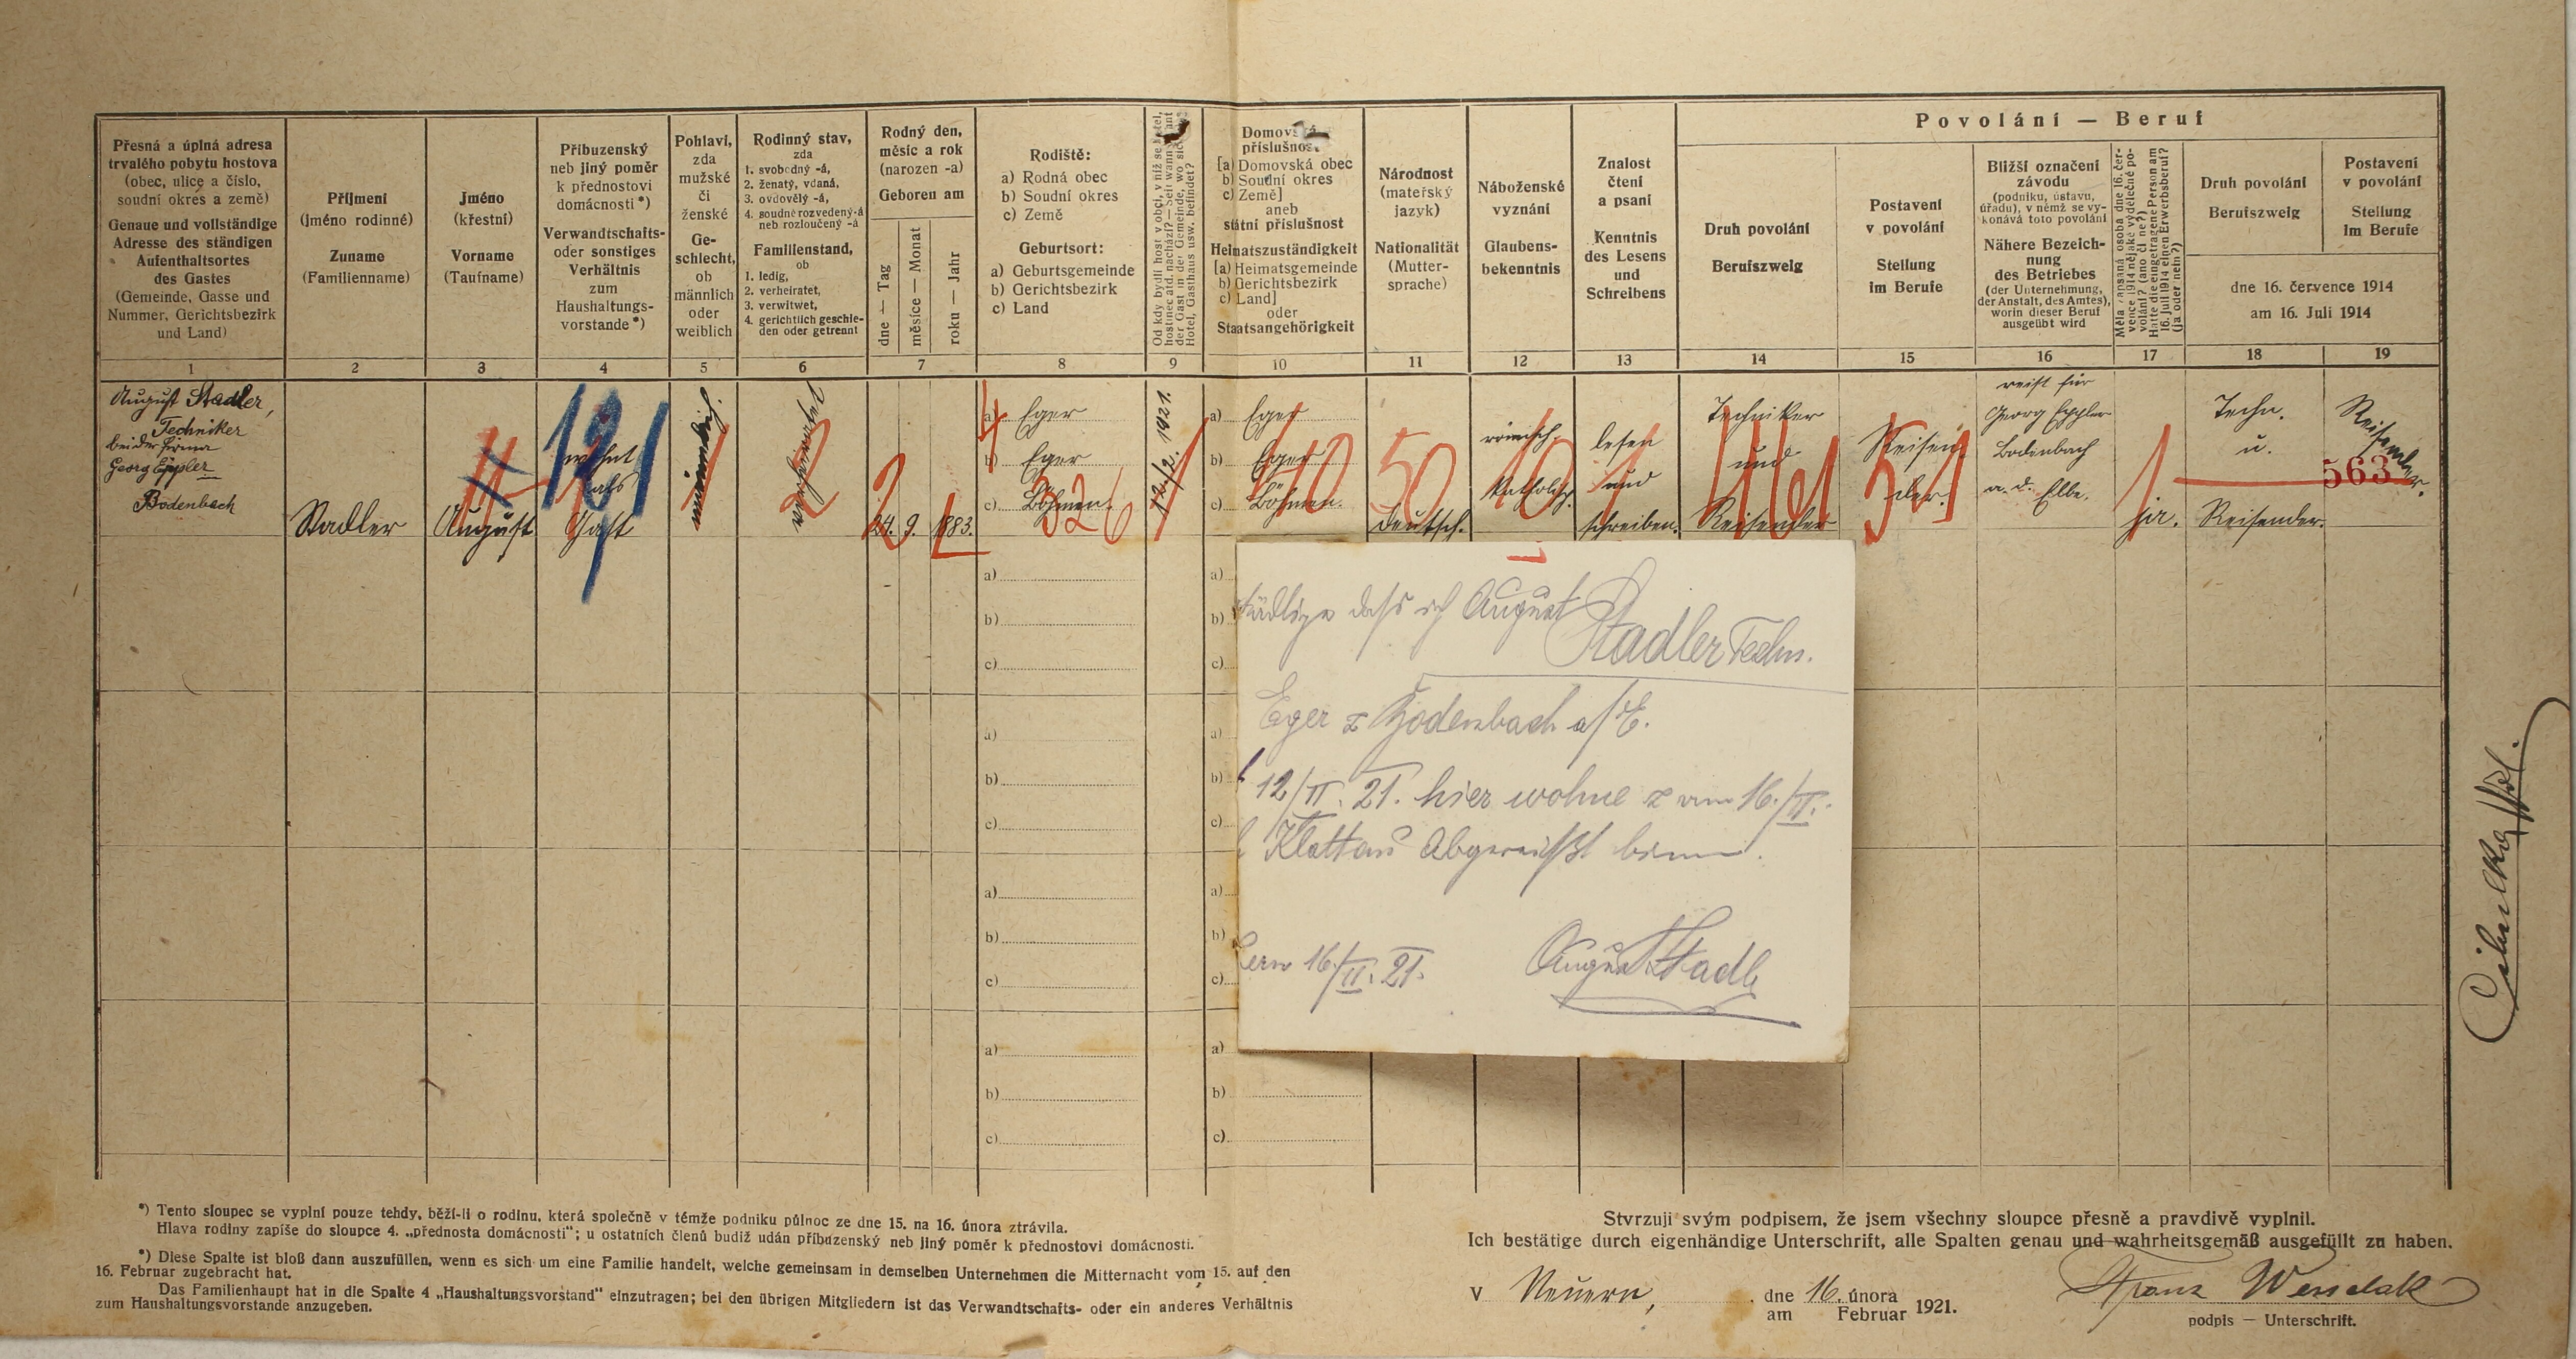 Povolání — Beruf
Přesná a úplná adresa
trvalého pobytu hostova
(obec, ulice a číslo,
soudní okres a země)
Genaue und vollständige
Adresse des ständigen
Aufenthaltsortes
des Gastes
(Gemeinde, Gasse und
Nummer, Gerichtsbezirk
und Land)
Příjmení
(jméno rodinné)
Zuname
(Familienname)
Jméno
(křestní)
Vorname
(Taufname)
Příbuzenský
neb jiný poměr
k přednostovi
domácnosti*)
Verwandtschafts-
oder sonstiges
Verhältnis
zum
Haushaltungs-
vorstande*)
Pohlaví,
zda
mužské
či
ženské
Ge-
schlecht,
ob
männlich
oder
weiblich
Rodinný stav,
zda
1. svobodný -á,
2. ženatý, vdaná,
3. ovdovělý -á,
4. soudně rozvedený-á
neb rozloučený -á
Familienstand,
ob
1. ledig,
2. verheiratet,
3. verwitwet,
4. gerichtlich geschie-
den oder getrennt
Rodný den,
měsíc a rok
(narozen -a)
Geboren am
dne — Tag
měsíce — Monat
roku — Jahr
Rodiště:
a) Rodná obec
b) Soudní okres
c) Země
Geburtsort:
a) Geburtsgemeinde
b) Gerichtsbezirk
c) Land
Od kdy bydlí host v obci, v níž se hotel,
hostinec atd. nachází? — Seit wann
der Gast in der Gemeinde, wo sich
Hotel, Gasthaus usw. befindet?
Domovská
příslušnost
[a) Domovská obec
b) Soudní okres
c) Země]
aneb
státní příslušnost
Heimatszuständigkeit
[a) Heimatsgemeinde
b) Gerichtsbezirk
c) Land]
oder
Staatsangehörigkeit
Národnost
(mateřský
jazyk)
Nationalität
(Mutter-
sprache)
Náboženské
vyznání
Glaubens-
bekenntnis
Znalost
čtení
a psaní
Kenntnis
des Lesens
und
Schreibens
Druh povolání
Berufszweig
Postavení
v povolání
Stellung
im Berufe
Bližší označení
závodu
(podniku, ústavu,
úřadu), v němž se vy-
konává toto povolání
Nähere Bezeich-
nung
des Betriebes
(der Unternehmung,
der Anstalt, des Amtes),
worin dieser Beruf
ausgeübt wird
Měla zapsaná osoba dne 16. čer-
vence 1914 nějaké výdělečné po-
volání? (ano či ne?)
Hatte die eingetragene Person am
16. Juli 1914 einen Erwerbsberuf?
(ja oder nein?)
Druh povolání
Berufszweig
Postavení
v povolání
Stellung
im Berufe
dne 16. července 1914
am 16. Juli 1914
1 2 3 4 5 6 7 8 9 10 11 12 13 14 15 16 17 18 19
August Stadler,
Techniker
bei der Firma
Georg Eppler
Bodenbach
Stadler
August
wohnt
als
Gast
121
männlich.
verheiratet
2
24. 9. 1883.
a) Eger
b) Eger
c) Böhmen.
326
12/2. 1921.
a) Eger
b) Eger
c) Böhmen.
deutsch.
50
römisch.
katholisch.
10
lesen
und
schreiben.
1
Techniker
und
Reisender
Reisen
der.
51
reist für
Georg Eppler
Bodenbach
a. d. Elbe.
ja.
Techn.
u.
Reisender.
Reisender.
563
a)
b)
c)
a)
b)
c)
a)
b)
c)
a)
b)
c)
a)
b)
c)
a)
b)
c)
a)
b)
c)
a)
b)
c)
dass ich August
Stadler Techn.
Eger z Bodenbach a/E.
12/II. 21. hier wohne z am 16./II.
Klattau Abgereißt binn.
ern 16/II. 21.
August Stadl
*) Tento sloupec se vyplní pouze tehdy, běží-li o rodinu, která společně v témže podniku půlnoc ze dne 15. na 16. února ztrávila.
Hlava rodiny zapíše do sloupce 4. „přednosta domácnosti“; u ostatních členů budiž udán příbuzenský neb jiný poměr k přednostovi domácnosti.
*) Diese Spalte ist bloß dann auszufüllen, wenn es sich um eine Familie handelt, welche gemeinsam in demselben Unternehmen die Mitternacht vom 15. auf den
16. Februar zugebracht hat.
Das Familienhaupt hat in die Spalte 4 „Haushaltungsvorstand“ einzutragen; bei den übrigen Mitgliedern ist das Verwandtschafts- oder ein anderes Verhältnis
zum Haushaltungsvorstande anzugeben.
Stvrzuji svým podpisem, že jsem všechny sloupce přesně a pravdivě vyplnil.
Ich bestätige durch eigenhändige Unterschrift, alle Spalten genau und wahrheitsgemäß ausgefüllt zu haben.
v Neuern, dne 16. února
am Februar 1921.
Franz
podpis — Unterschrift.